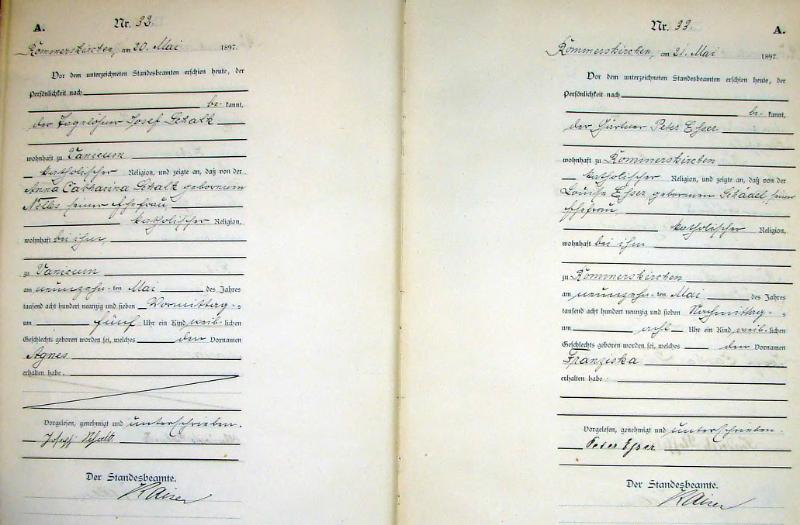 A.
Nr. 32.
Rommerskirchen, am 20. Mai 1897.
Vor dem unterzeichneten Standesbeamten erschien heute, der
Persönlichkeit nach
be kannt,
der Tagelöhner Josef Schalk
wohnhaft zu Vanikum
katholischer Religion, und zeigte an, daß von der
Anna Catharina Schalk geborenen
Nelles seiner Ehefrau
katholischer Religion,
wohnhaft bei ihm
zu Vanikum
am neunzehn ten Mai des Jahres
tausend acht hundert neunzig und sieben Vormittag s
um fünf Uhr ein Kind weib lichen
Geschlechts geboren worden sei, welches den Vornamen
Agnes
erhalten habe.
Vorgelesen, genehmigt und unterschrieben.
Joseph Schalk
Der Standesbeamte.
Kaiser
Nr. 33.
A.
Rommerskirchen, am 21. Mai 1897.
Vor dem unterzeichneten Standesbeamten erschien heute, der
Persönlichkeit nach
be kannt,
der Gärtner Peter Esser
wohnhaft zu Rommerskirchen
katholischer Religion, und zeigte an, daß von der
Louise Esser geborenen seiner
Ehefrau
katholischer Religion,
wohnhaft bei ihm
zu Rommerskirchen
am neunzehn ten Mai des Jahres
tausend acht hundert neunzig und sieben Nachmittag s
um acht Uhr ein Kind weib lichen
Geschlechts geboren worden sei, welches den Vornamen
Franziska
erhalten habe.
Vorgelesen, genehmigt und unterschrieben.
Peter Esser
Der Standesbeamte.
Kaiser